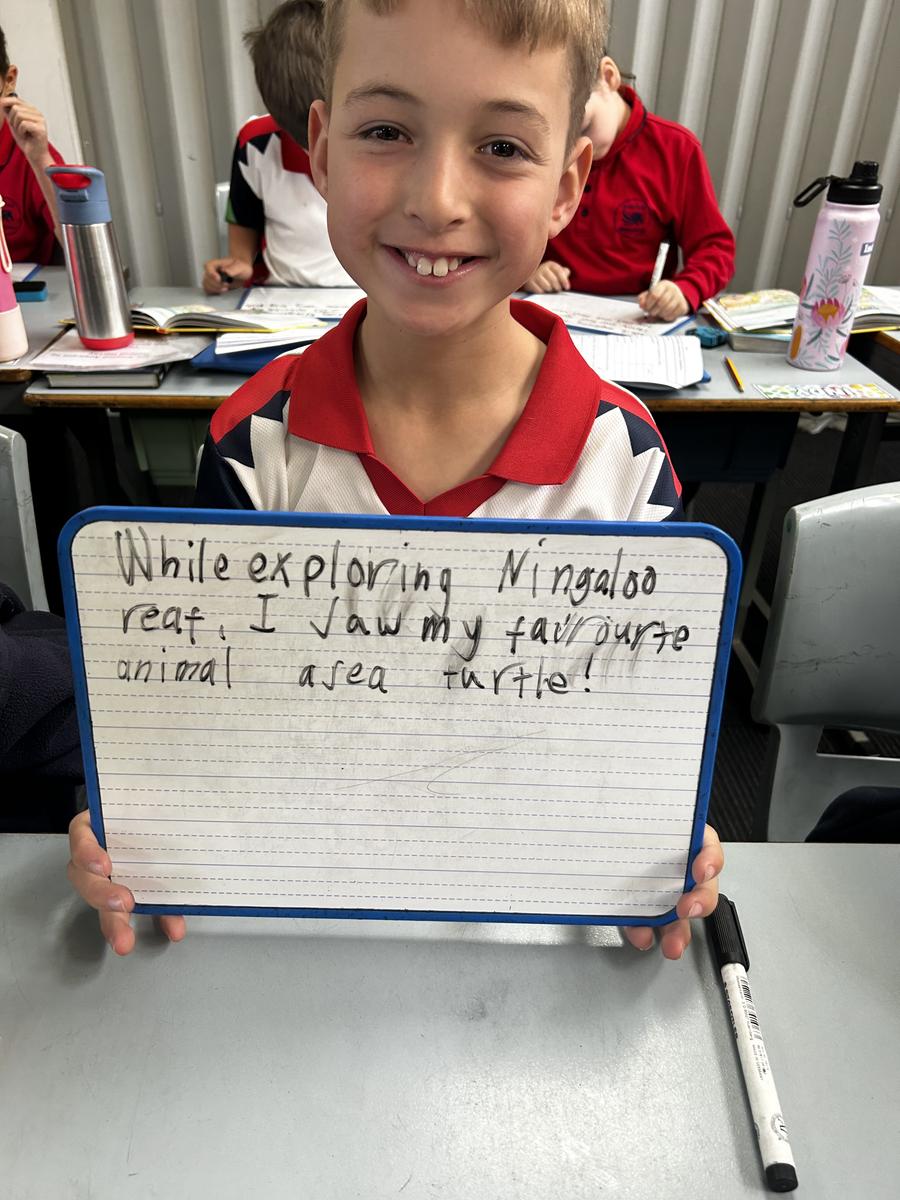 While exploring Ningaloo
reaf, I saw my favrourte
animal a sea turtle!